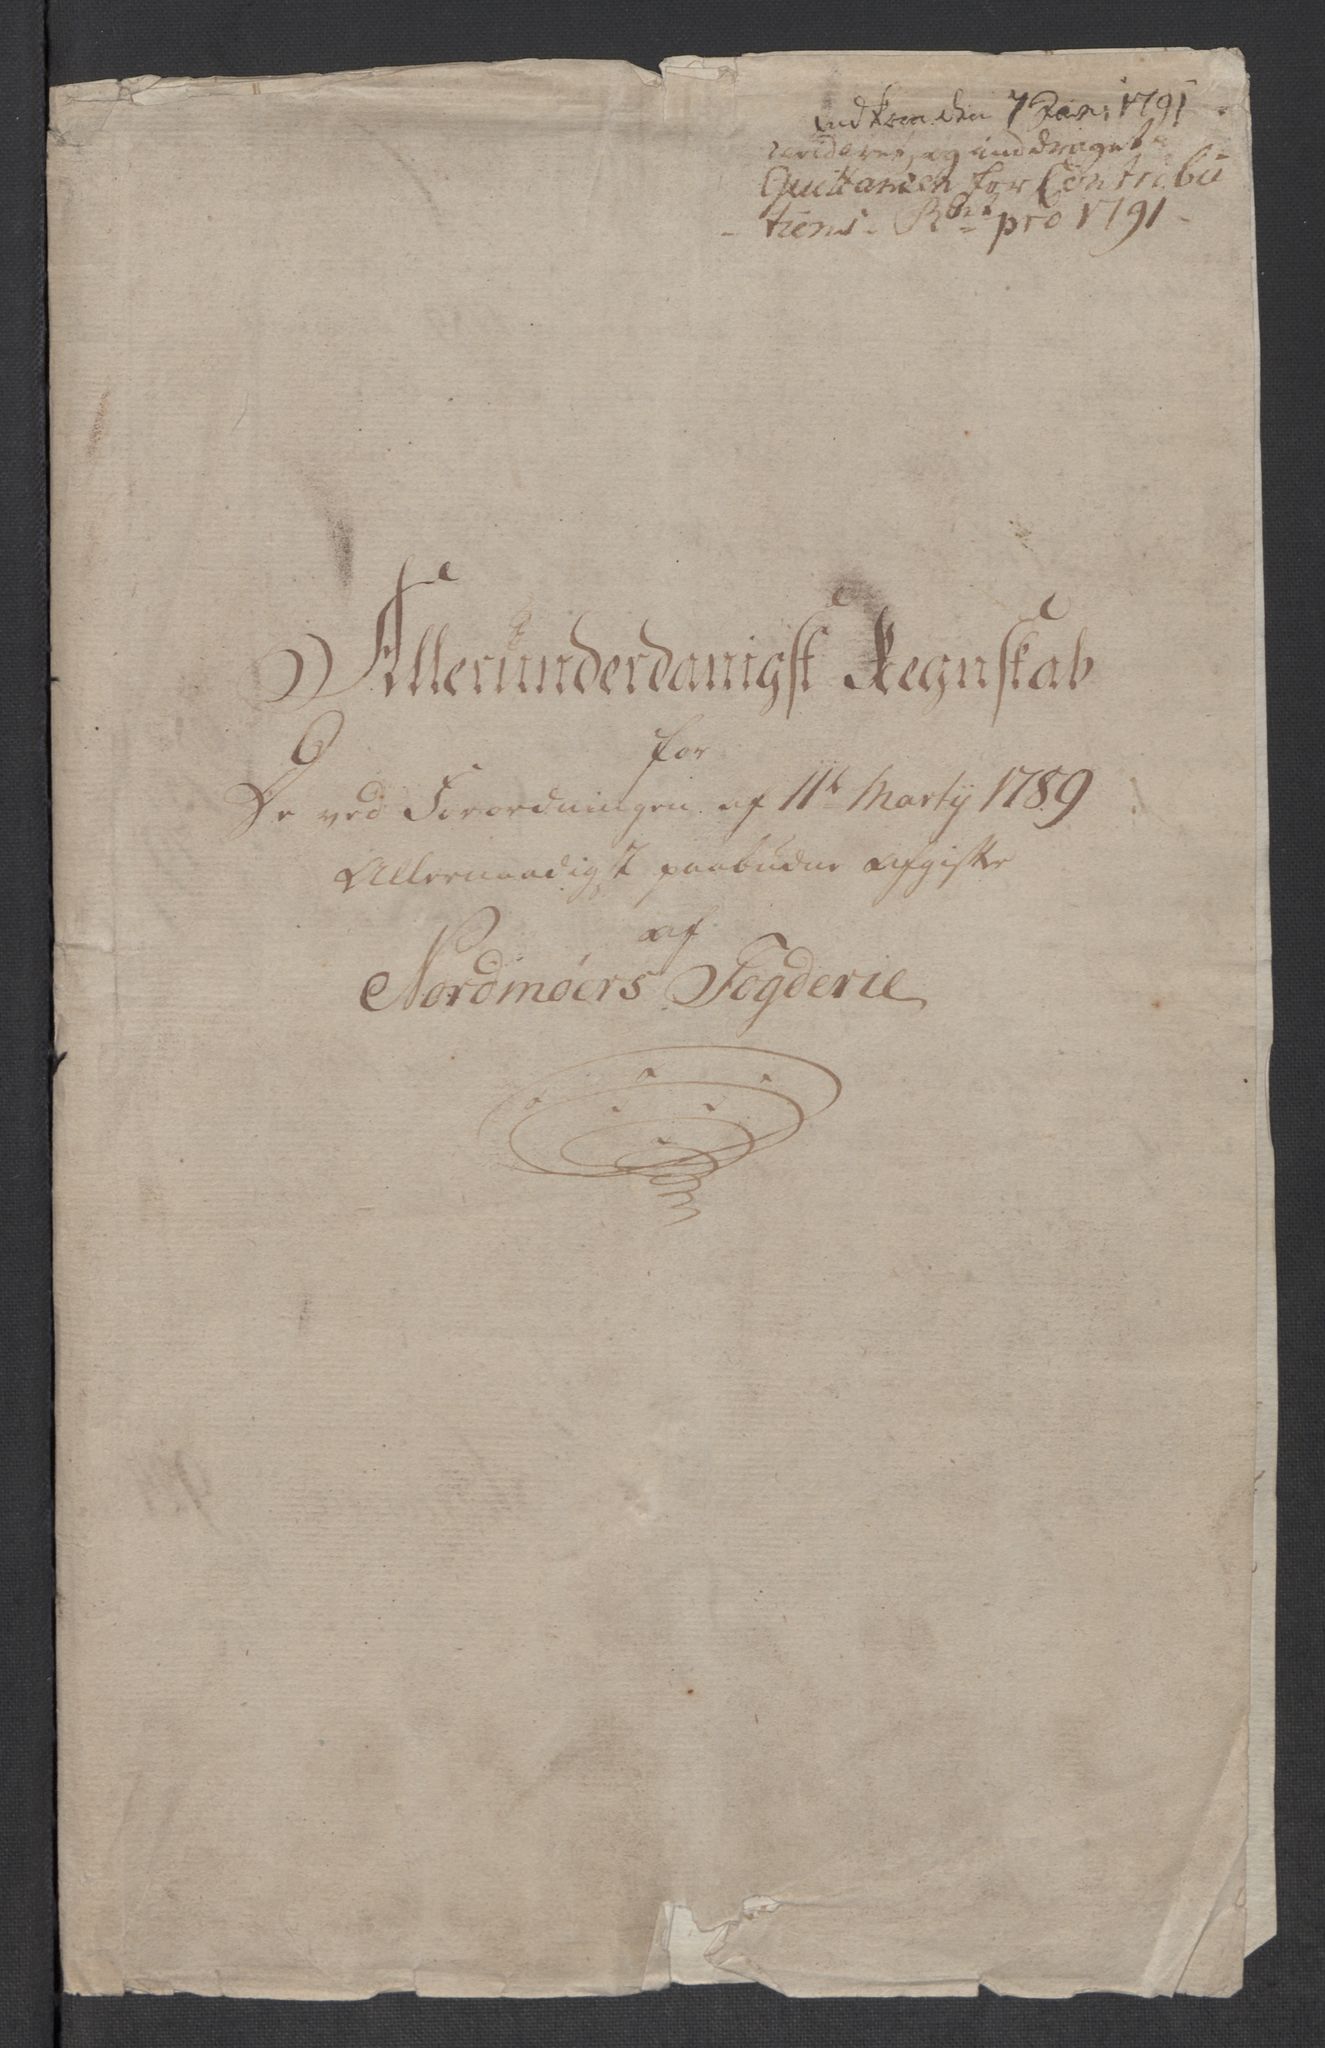 indkom den 7 Jan: 1791
revideret, og inddraget
Quittancen for Contribu
tions - Rgnt pro 1791 -
Allerunderdanigst Regnskab
for
De ved Forordningen af 11te Martij 1789
Allernaadigst paabudne Afgifter
af
Nordmøers Fogderie